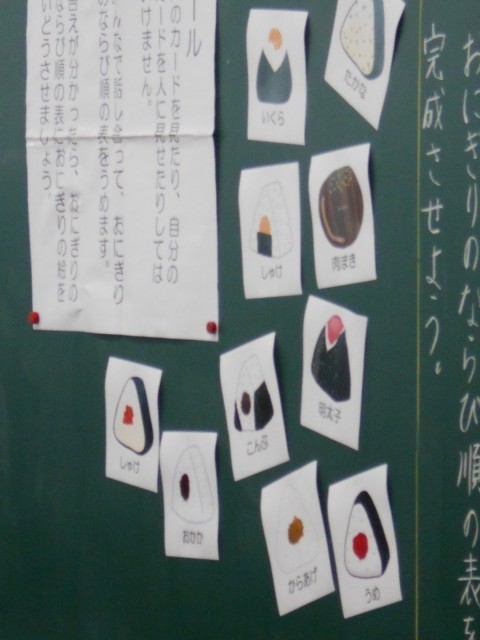 おにぎりのならび順の表を
完成させよう。
たかな
いくら
肉まき
しゃけ
明太子
こんぶ
しゃけ
おかか
からあげ
うめ
ール
のカードを見たり、自分の
ードを人に見せたりしては
けません。
んなで話し合って、おにぎり
のならび順の表をうめます。
答えが分かったら、おにぎりの
ならび順の表におにぎりの絵を
いどうさせましょう。